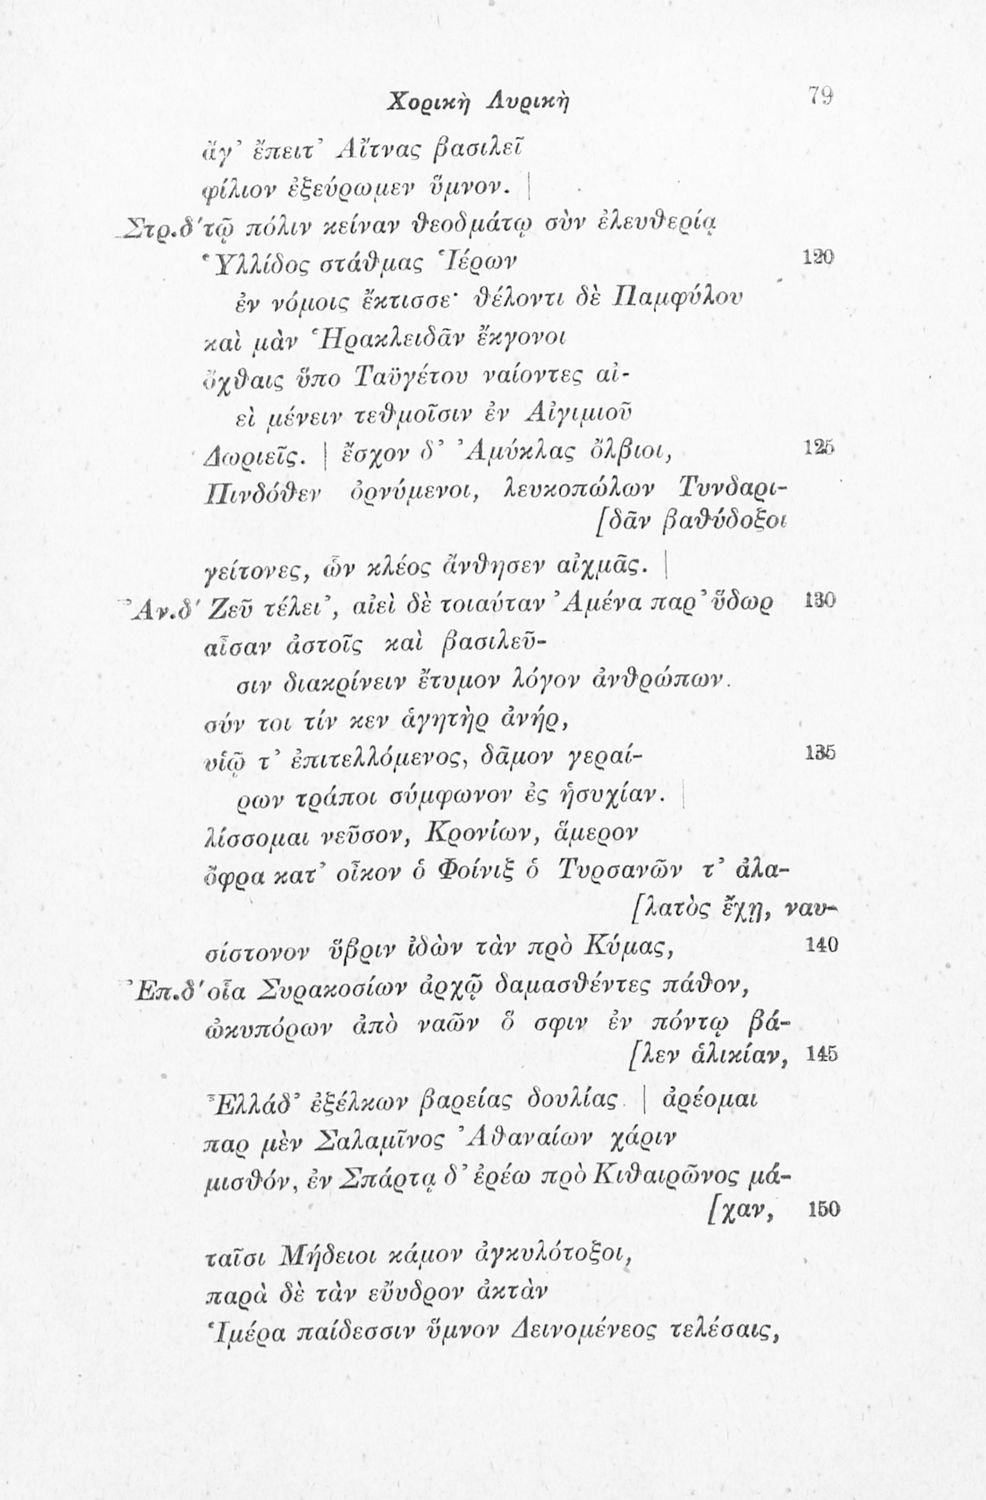 Χορικὴ Λυρικὴ 79
ἄγ᾽ ἔπειτ᾽ Αἴτνας βασιλεῖ
φίλιον ἐξεύρωμεν ὕμνον. |
Στρ.δ΄ τῷ πόλιν κείναν θεοδμάτῳ σὺν ἐλευθερίᾳ
Ὑλλίδος στάθμας Ἱέρων 120
ἐν νόμοις ἔκτισσε· θέλοντι δὲ Παμφύλου
καὶ μὰν Ἡρακλειδᾶν ἔκγονοι
ὄχθαις ὕπο Ταϋγέτου ναίοντες αἰ-
εὶ μένειν τεθμοῖσιν ἐν Αἰγιμιοῦ
Δωριεῖς. | ἔσχον δ᾽ Ἀμύκλας ὄλβιοι, 125
Πινδόθεν ὀρνύμενοι, λευκοπώλων Τυνδαρι-
[δᾶν βαθύδοξοι
γείτονες, ὧν κλέος ἄνθησεν αἰχμᾶς. |
Ἀν.δ΄ Ζεῦ τέλει᾽, αἰεὶ δὲ τοιαύταν Ἀμένα παρ᾽ ὕδωρ 130
αἶσαν ἀστοῖς καὶ βασιλεῦ-
σιν διακρίνειν ἔτυμον λόγον ἀνθρώπων.
σύν τοι τίν κεν ἁγητὴρ ἀνήρ,
υἱῷ τ᾽ ἐπιτελλόμενος, δᾶμον γεραί- 135
ρων τράποι σύμφωνον ἐς ἡσυχίαν. |
λίσσομαι νεῦσον, Κρονίων, ἅμερον
ὄφρα κατ᾽ οἶκον ὁ Φοίνιξ ὁ Τυρσανῶν τ᾽ ἀλα-
[λατὸς ἔχῃ, ναυ-
σίστονον ὕβριν ἰδὼν τὰν πρὸ Κύμας, 140
Ἐπ.δ΄ οἷα Συρακοσίων ἀρχῷ δαμασθέντες πάθον,
ὠκυπόρων ἀπὸ ναῶν ὅ σφιν ἐν πόντῳ βά-
[λεν ἁλικίαν, 145
Ἑλλάδ᾽ ἐξέλκων βαρείας δουλίας. | ἀρέομαι
παρ μὲν Σαλαμῖνος Ἀθαναίων χάριν
μισθόν, ἐν Σπάρτᾳ δ᾽ ἐρέω πρὸ Κιθαιρῶνος μά-
[χαν, 150
ταῖσι Μήδειοι κάμον ἀγκυλότοξοι,
παρὰ δὲ τὰν εὔυδρον ἀκτὰν
Ἱμέρα παίδεσσιν ὕμνον Δεινομένεος τελέσαις,